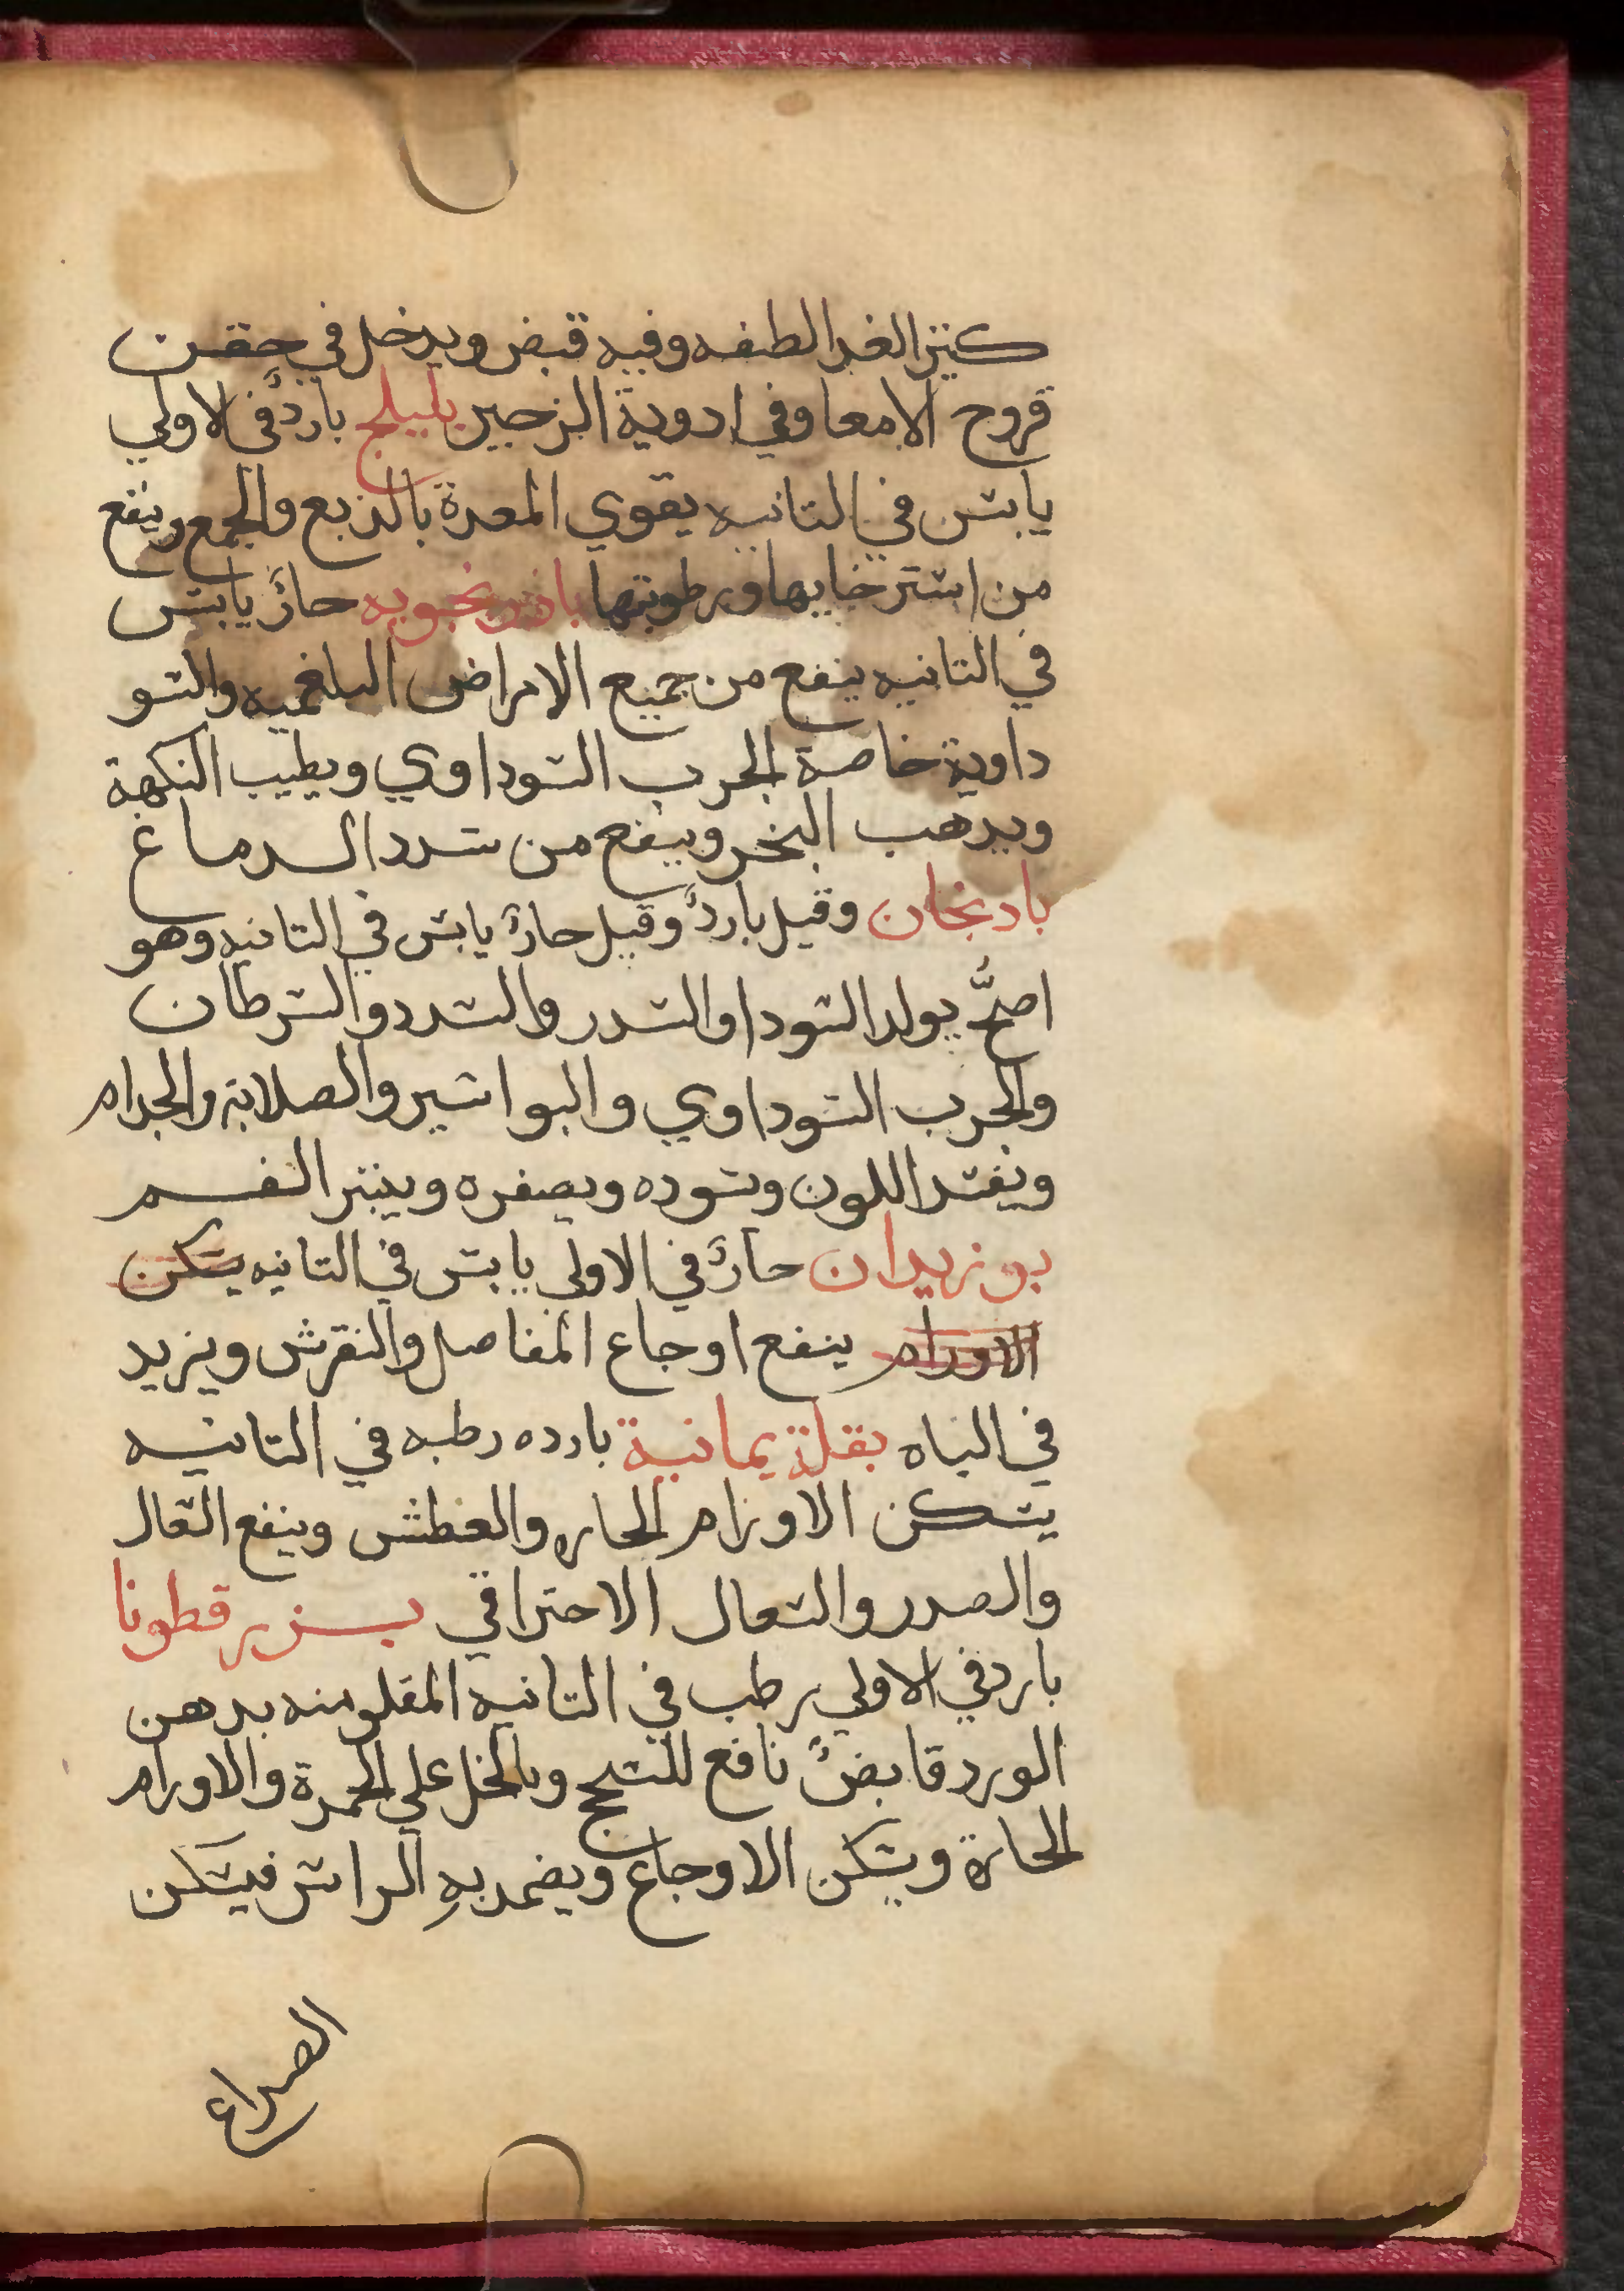 كتير الغدا لطفه وفيه قبض ويدخل في حقن
قروح الامعا وفي ادوية الزحير بليلج باردٌ في الاولي
يابس في التانيه يقوي المعدة بالدبع والجمع وينفع
من استرخايها ورطوبتها باذرنجبويه حارٌ يابس
في التانيه ينفع من جميع الامراض البلغميه والسو
داوية خاصة الجرب السوداوي ويطيب النكهة
ويدهب البخر وينفع من سدد الدماغ
بادنجان وقيل باردٌ وقيل حارٌ يابس في التانيه وهو
اصحُّ يولد السودا والسدر والسدد والسرطان
والجرب السوداوي والبواسير والصلابة والجدام
ويفسد اللون ويسوده ويصفره وينتر الفم
بوزيدان حارٌ في الاولي يابس في التانيه يسكن
الاورام ينفع اوجاع المفاصل والنقرس ويزيد
في الباه بقلة يمانية بارده رطبه في التانيه
يسكن الاورام الحاره والعطش وينفع السعال
والصدر والسعال الاحتراقي بزر قطونا
بارد في الاولي رطب في التانيه المقلو منه بدهن
الورد قابضٌ نافع للسحج وبالخل علي الحمرة والاورام
الحارة ويسكن الاوجاع ويضمد به الراس فيسكن
الصداع